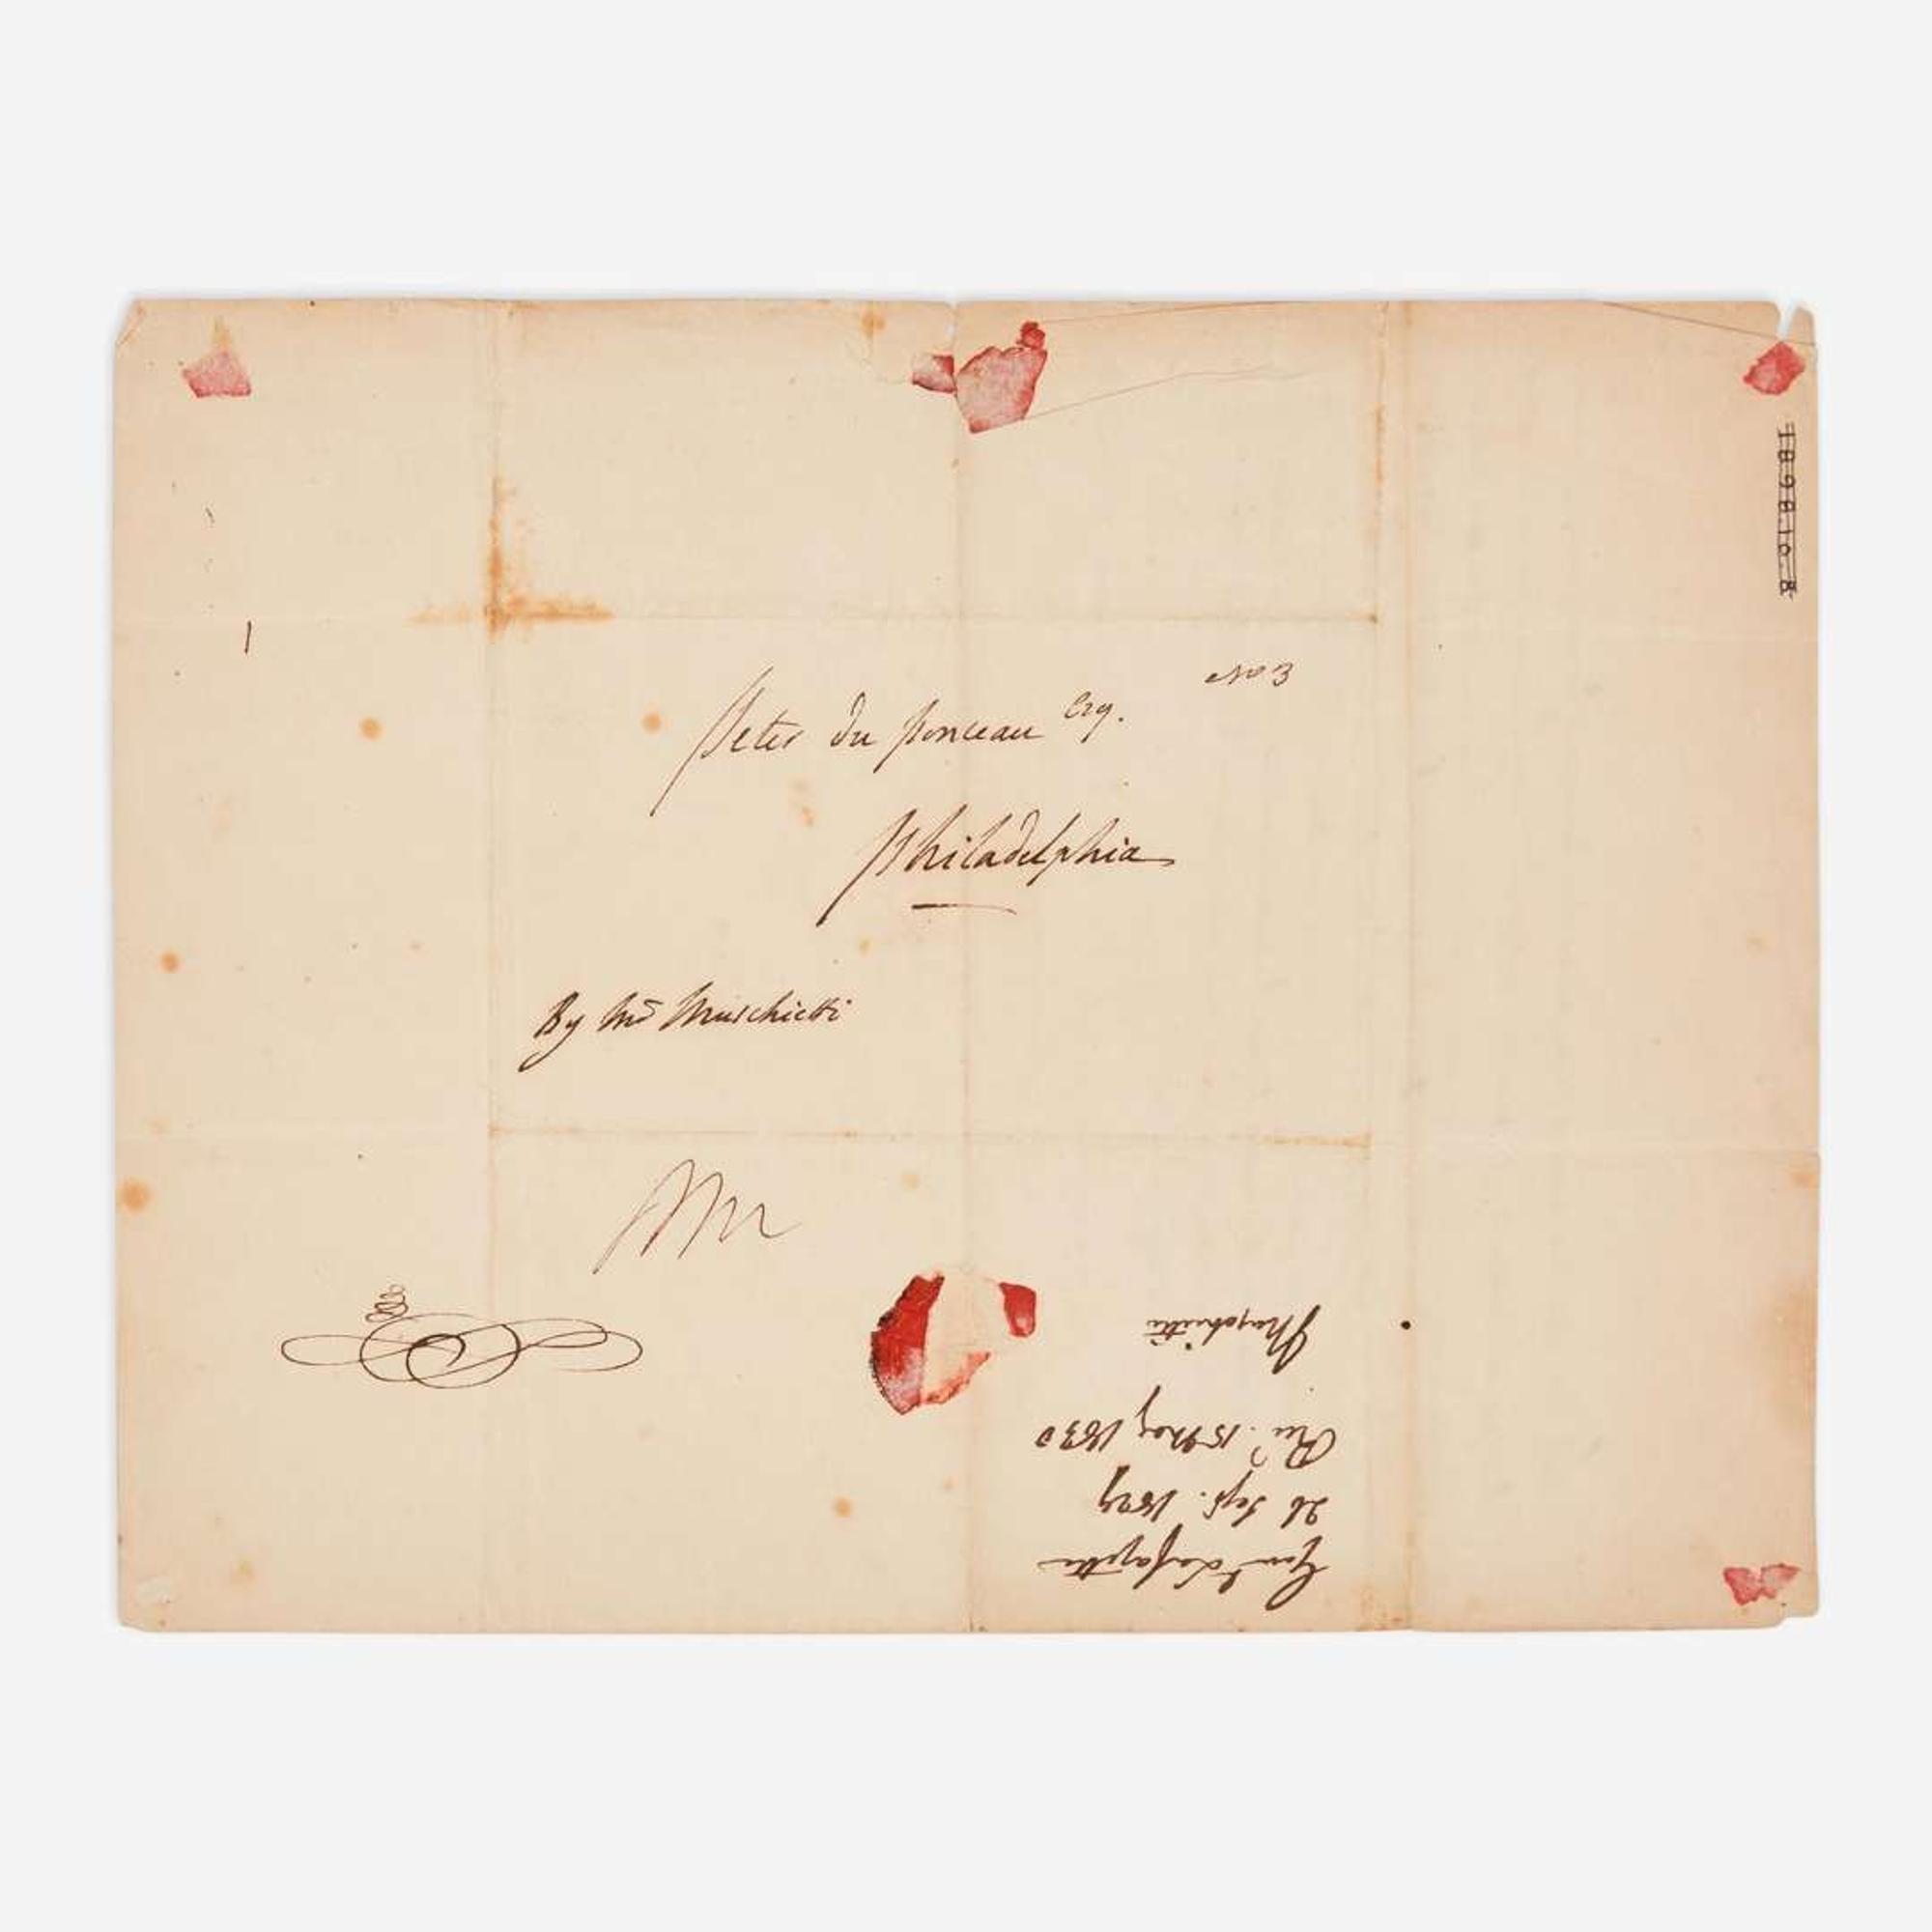 No 3
Peter Du Ponceau Esq.
Philadelphia
By Mr Muschietti
Mr
Genl Lafayette
26 Sept. 1829
Recd. 15 May 1830
1898.10.8